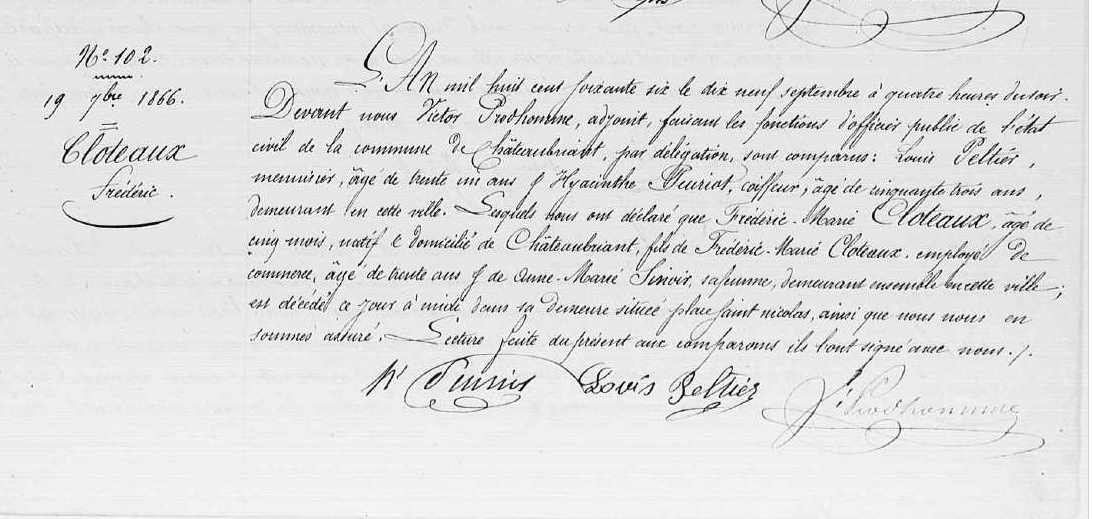 N° 102.
19 7bre 1866.
Cloteaux
Frédéric.
L'An mil huit cent soixante six le dix neuf septembre à quatre heures du soir.
Devant nous Victor Prodhomme, adjoint, faisant les fonctions d'officier public de l'état
civil de la commune de Châteaubriant, par délégation, sont comparus: Louis Peltier,
menuisier, âgé de trente un ans & Hyacinthe coiffeur, âgé de cinquante trois ans,
demeurant en cette ville. Lesquels nous ont déclaré que Frédéric-Marie Cloteaux, âgé de
cinq mois, natif & domicilié de Châteaubriant, fils de Frédéric-Marie Cloteaux, employé de
commerce, âgé de trente ans & de Anne-Marie sa femme, demeurant ensemble en cette ville;
est décédé ce jour à midi dans sa demeure située place saint nicolas, ainsi que nous nous en
sommes assuré. Lecture faite du présent aux comparans ils l'ont signé avec nous./.
Louis Peltier
Vr Prodhomme